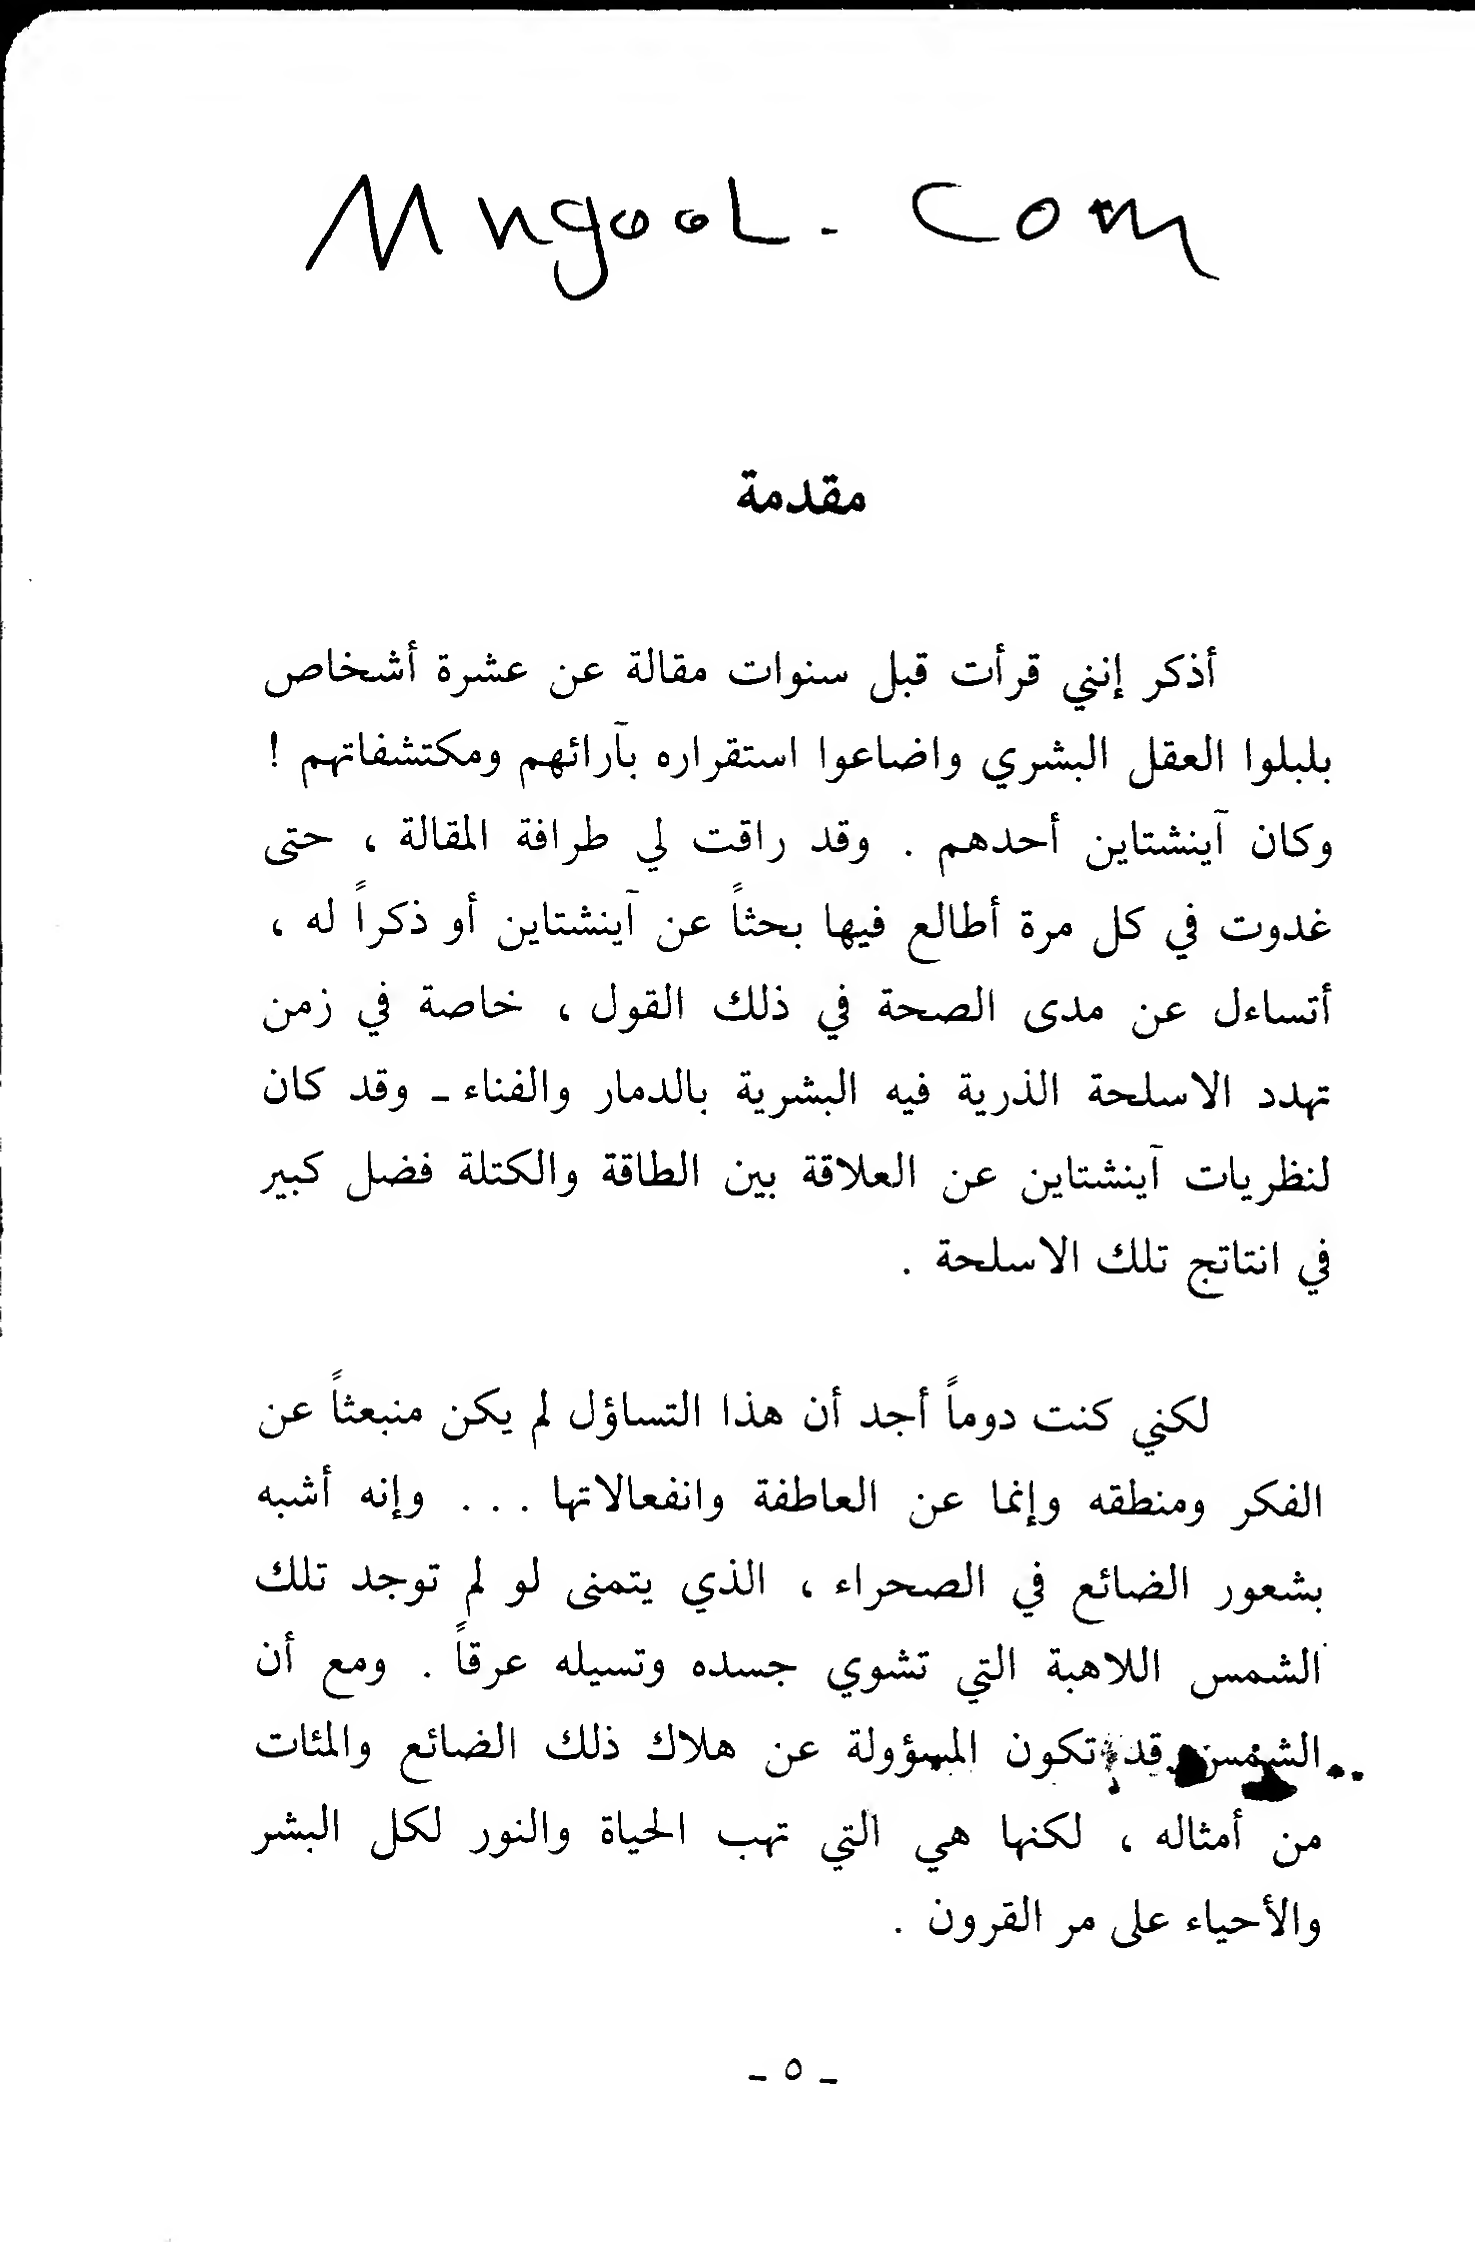 Mngool.com
مقدمة
أذكر إنني قرأت قبل سنوات مقالة عن عشرة أشخاص
بلبلوا العقل البشري واضاعوا استقراره بآرائهم ومكتشفاتهم !
وكان آينشتاين أحدهم . وقد راقت لي طرافة المقالة ، حتى
غدوت في كل مرة أطالع فيها بحثاً عن آينشتاين أو ذكراً له ،
أتساءل عن مدى الصحة في ذلك القول ، خاصة في زمن
تهدد الاسلحة الذرية فيه البشرية بالدمار والفناء ـ وقد كان
لنظريات آينشتاين عن العلاقة بين الطاقة والكتلة فضل كبير
في انتاتج تلك الاسلحة .
لكني كنت دوماً أجد أن هذا التساؤل لم يكن منبعثاً عن
الفكر ومنطقه وإنما عن العاطفة وانفعالاتها ... وإنه أشبه
بشعور الضائع في الصحراء ، الذي يتمنى لو لم توجد تلك
الشمس اللاهبة التي تشوي جسده وتسيله عرقاً . ومع أن
الشمس قد تكون المسؤولة عن هلاك ذلك الضائع والمئات
من أمثاله ، لكنها هي التي تهب الحياة والنور لكل البشر
والأحياء على مر القرون .
ـ ٥ ـ